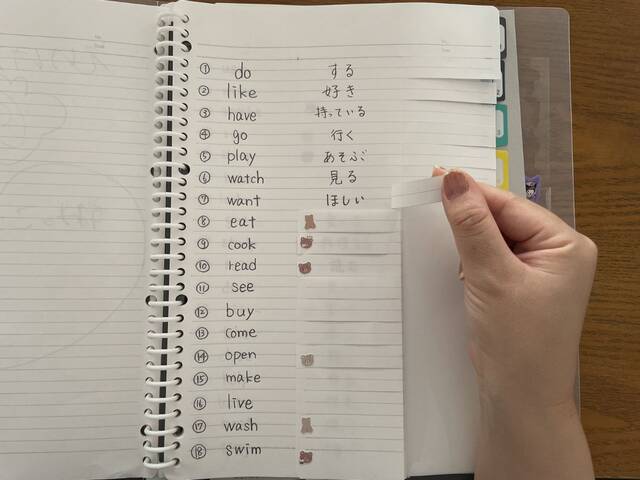 ① do する
② like 好き
③ have 持っている
④ go 行く
⑤ play あそぶ
⑥ watch 見る
⑦ want ほしい
⑧ eat
⑨ cook
⑩ read
⑪ see
⑫ buy
⑬ come
⑭ open
⑮ make
⑯ live
⑰ wash
⑱ swim